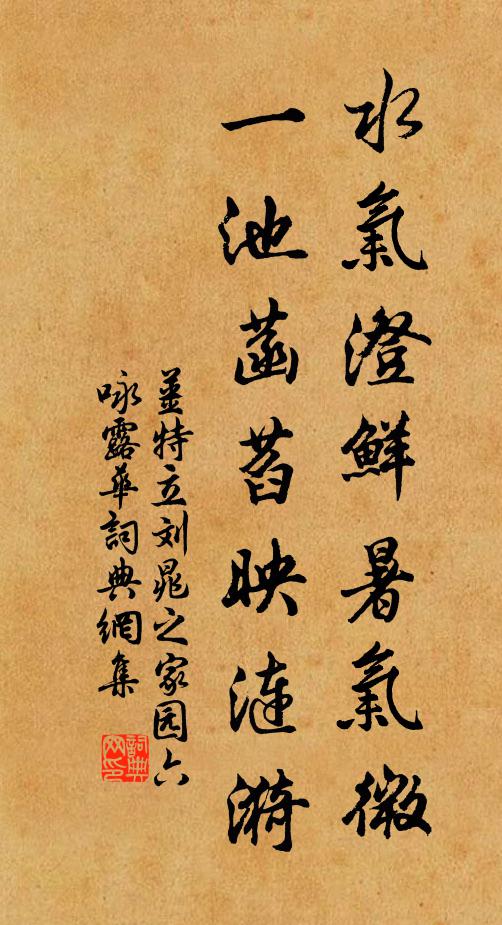 水氣澄鮮暑氣微
一池菡萏映漣漪
薑特立刘晁之家园六
咏露华詞典網集
詞典
网印